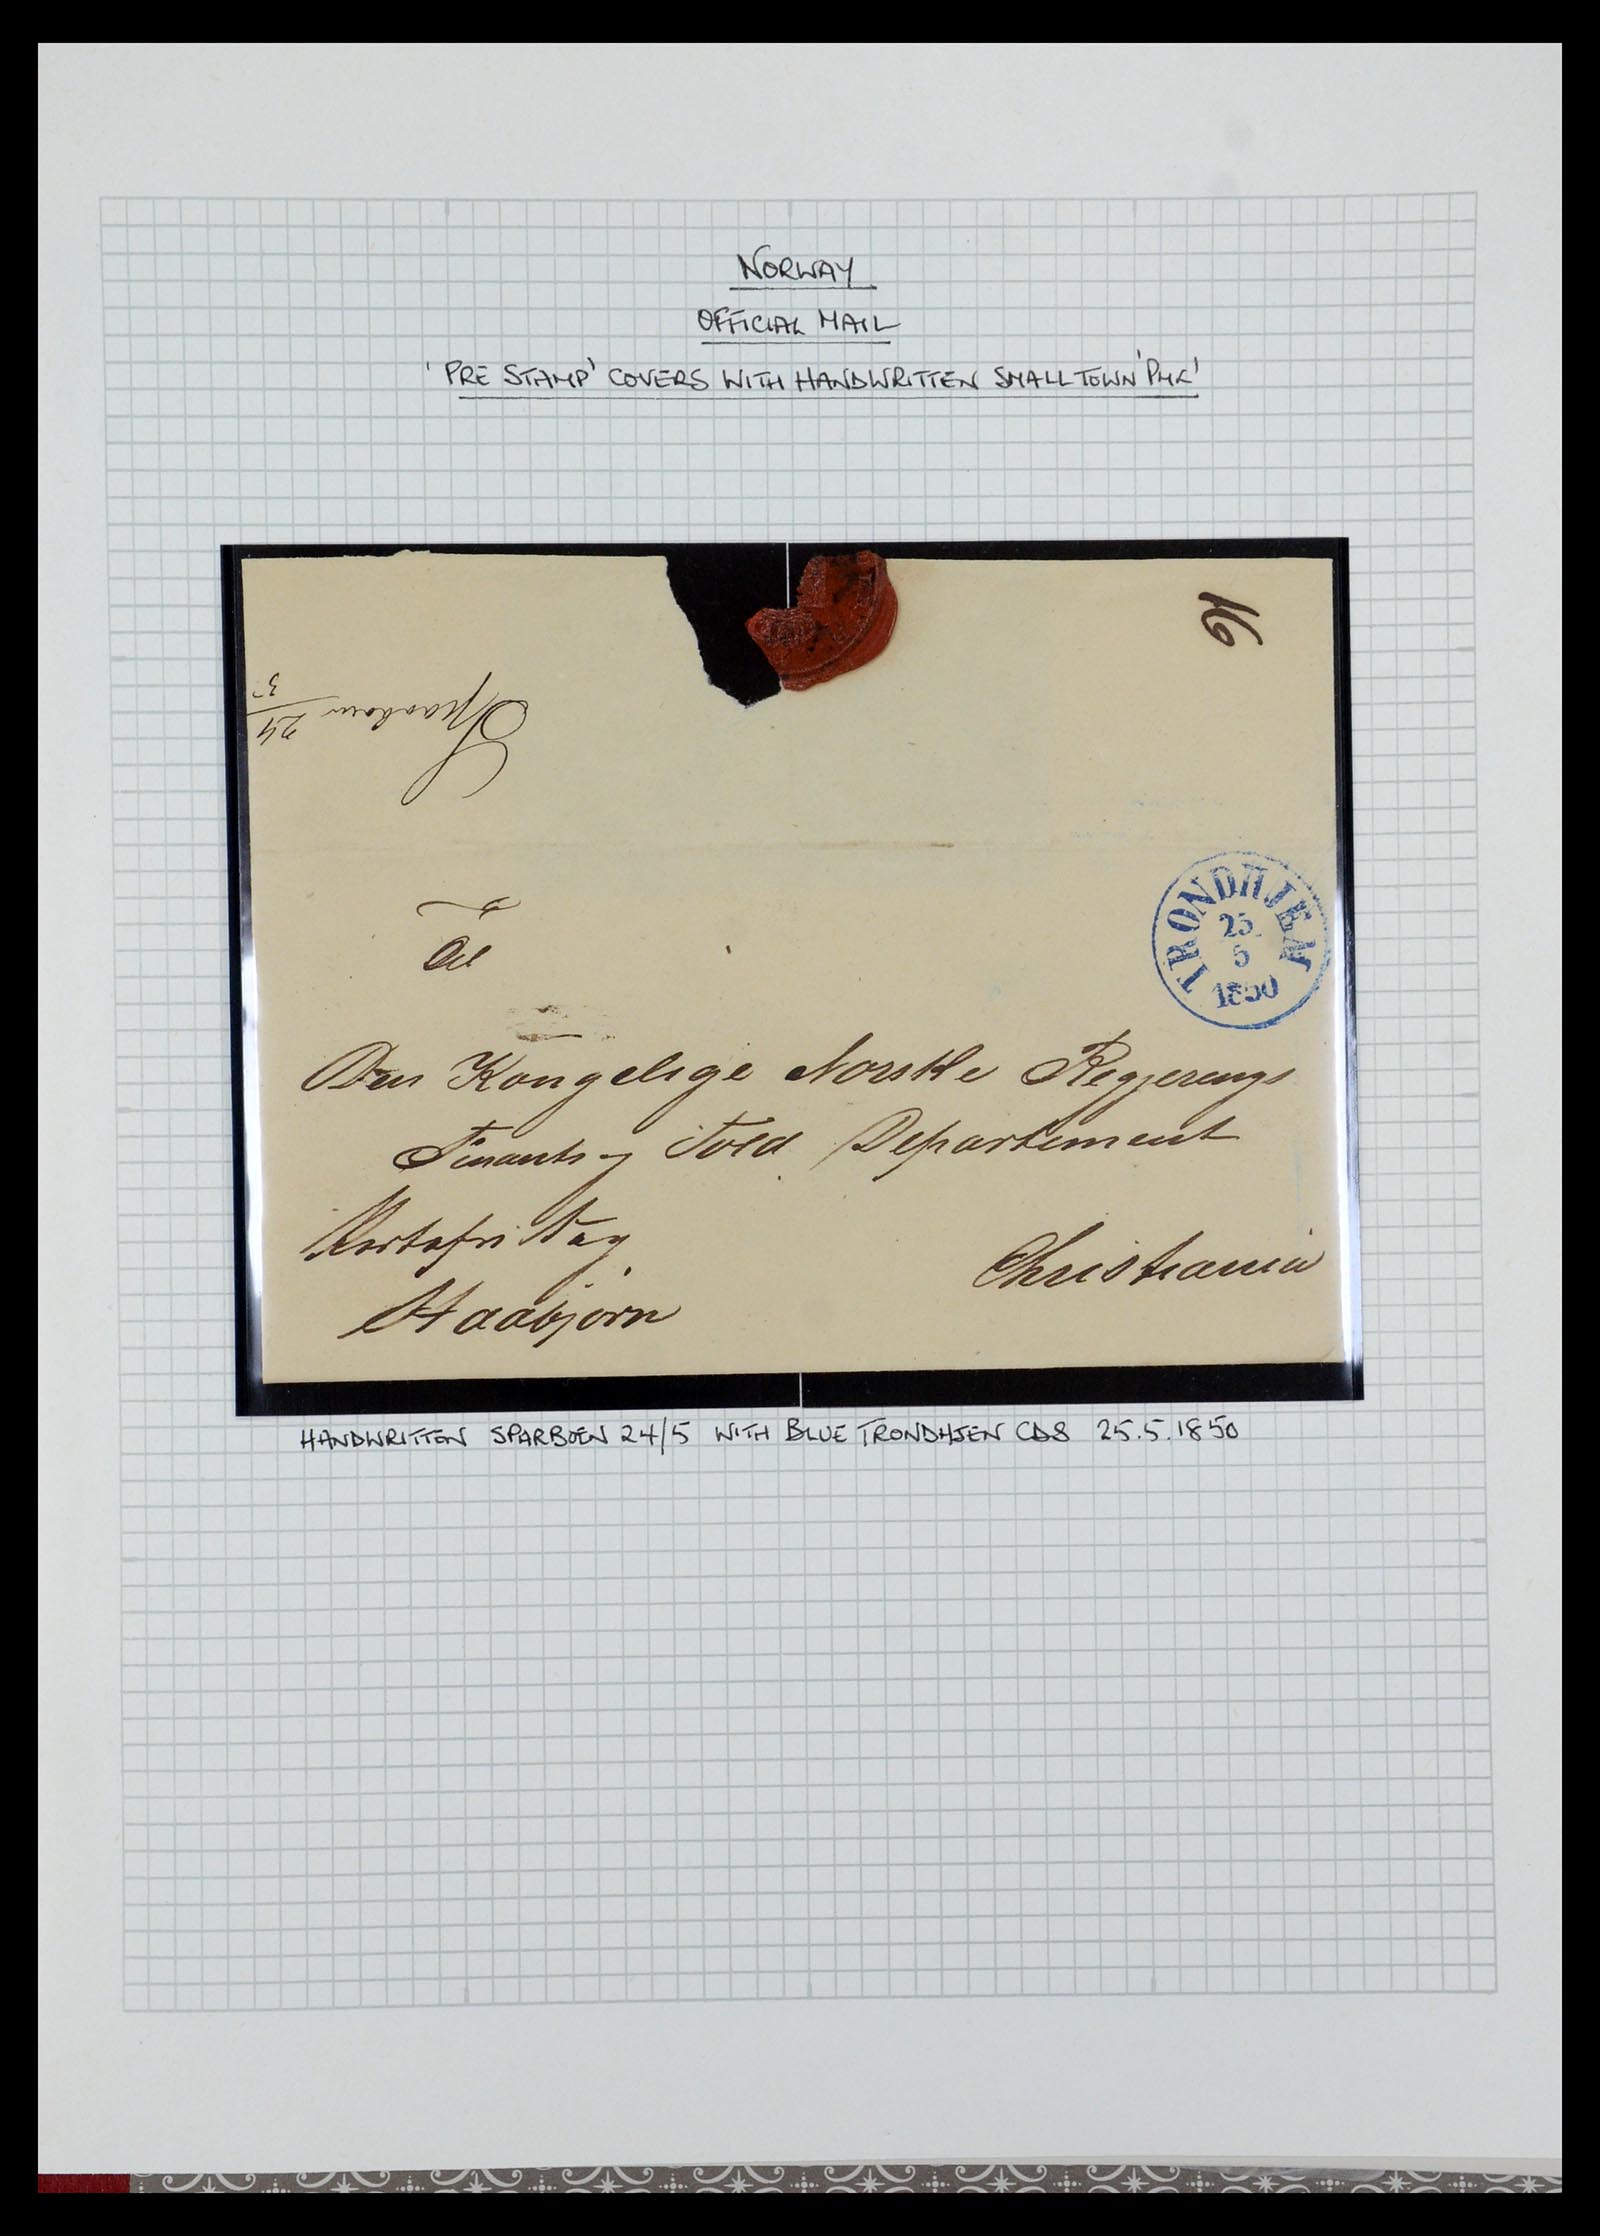 NORWAY
OFFICIAL MAIL
'PRE STAMP' COVERS WITH HANDWRITTEN SMALL TOWN 'PMK'
16
24
5
TRONDHJEM
25
5
1850
Den Kongelige Norske Regjerings
Finants og Told Departement
Christiania
Aabjörn
HANDWRITTEN SPARBOEN 24/5 WITH BLUE TRONDHJEN CDS 25.5.1850